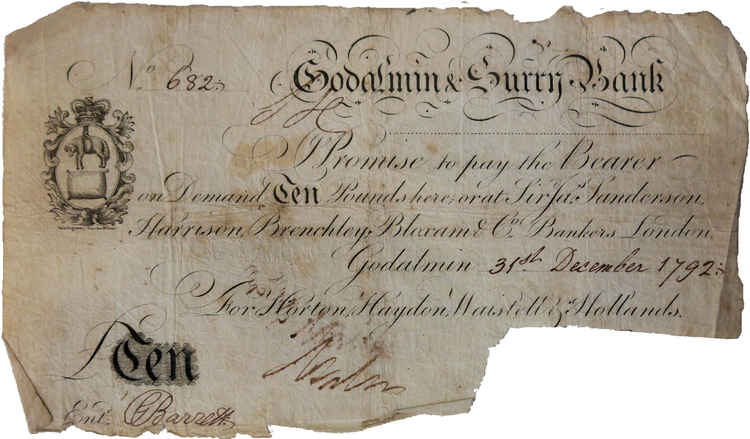 No 682
Godalmin & Surry Bank
I Promise to pay the Bearer
on Demand Ten Pounds here, or at Sir Jas. Sanderson,
Harrison, Brenchley, Bloxam & Co. Bankers London
Godalmin 31st December 1792
For Horton, Haydon, Waistell & Hollands.
£ Ten
Entd. Barrett